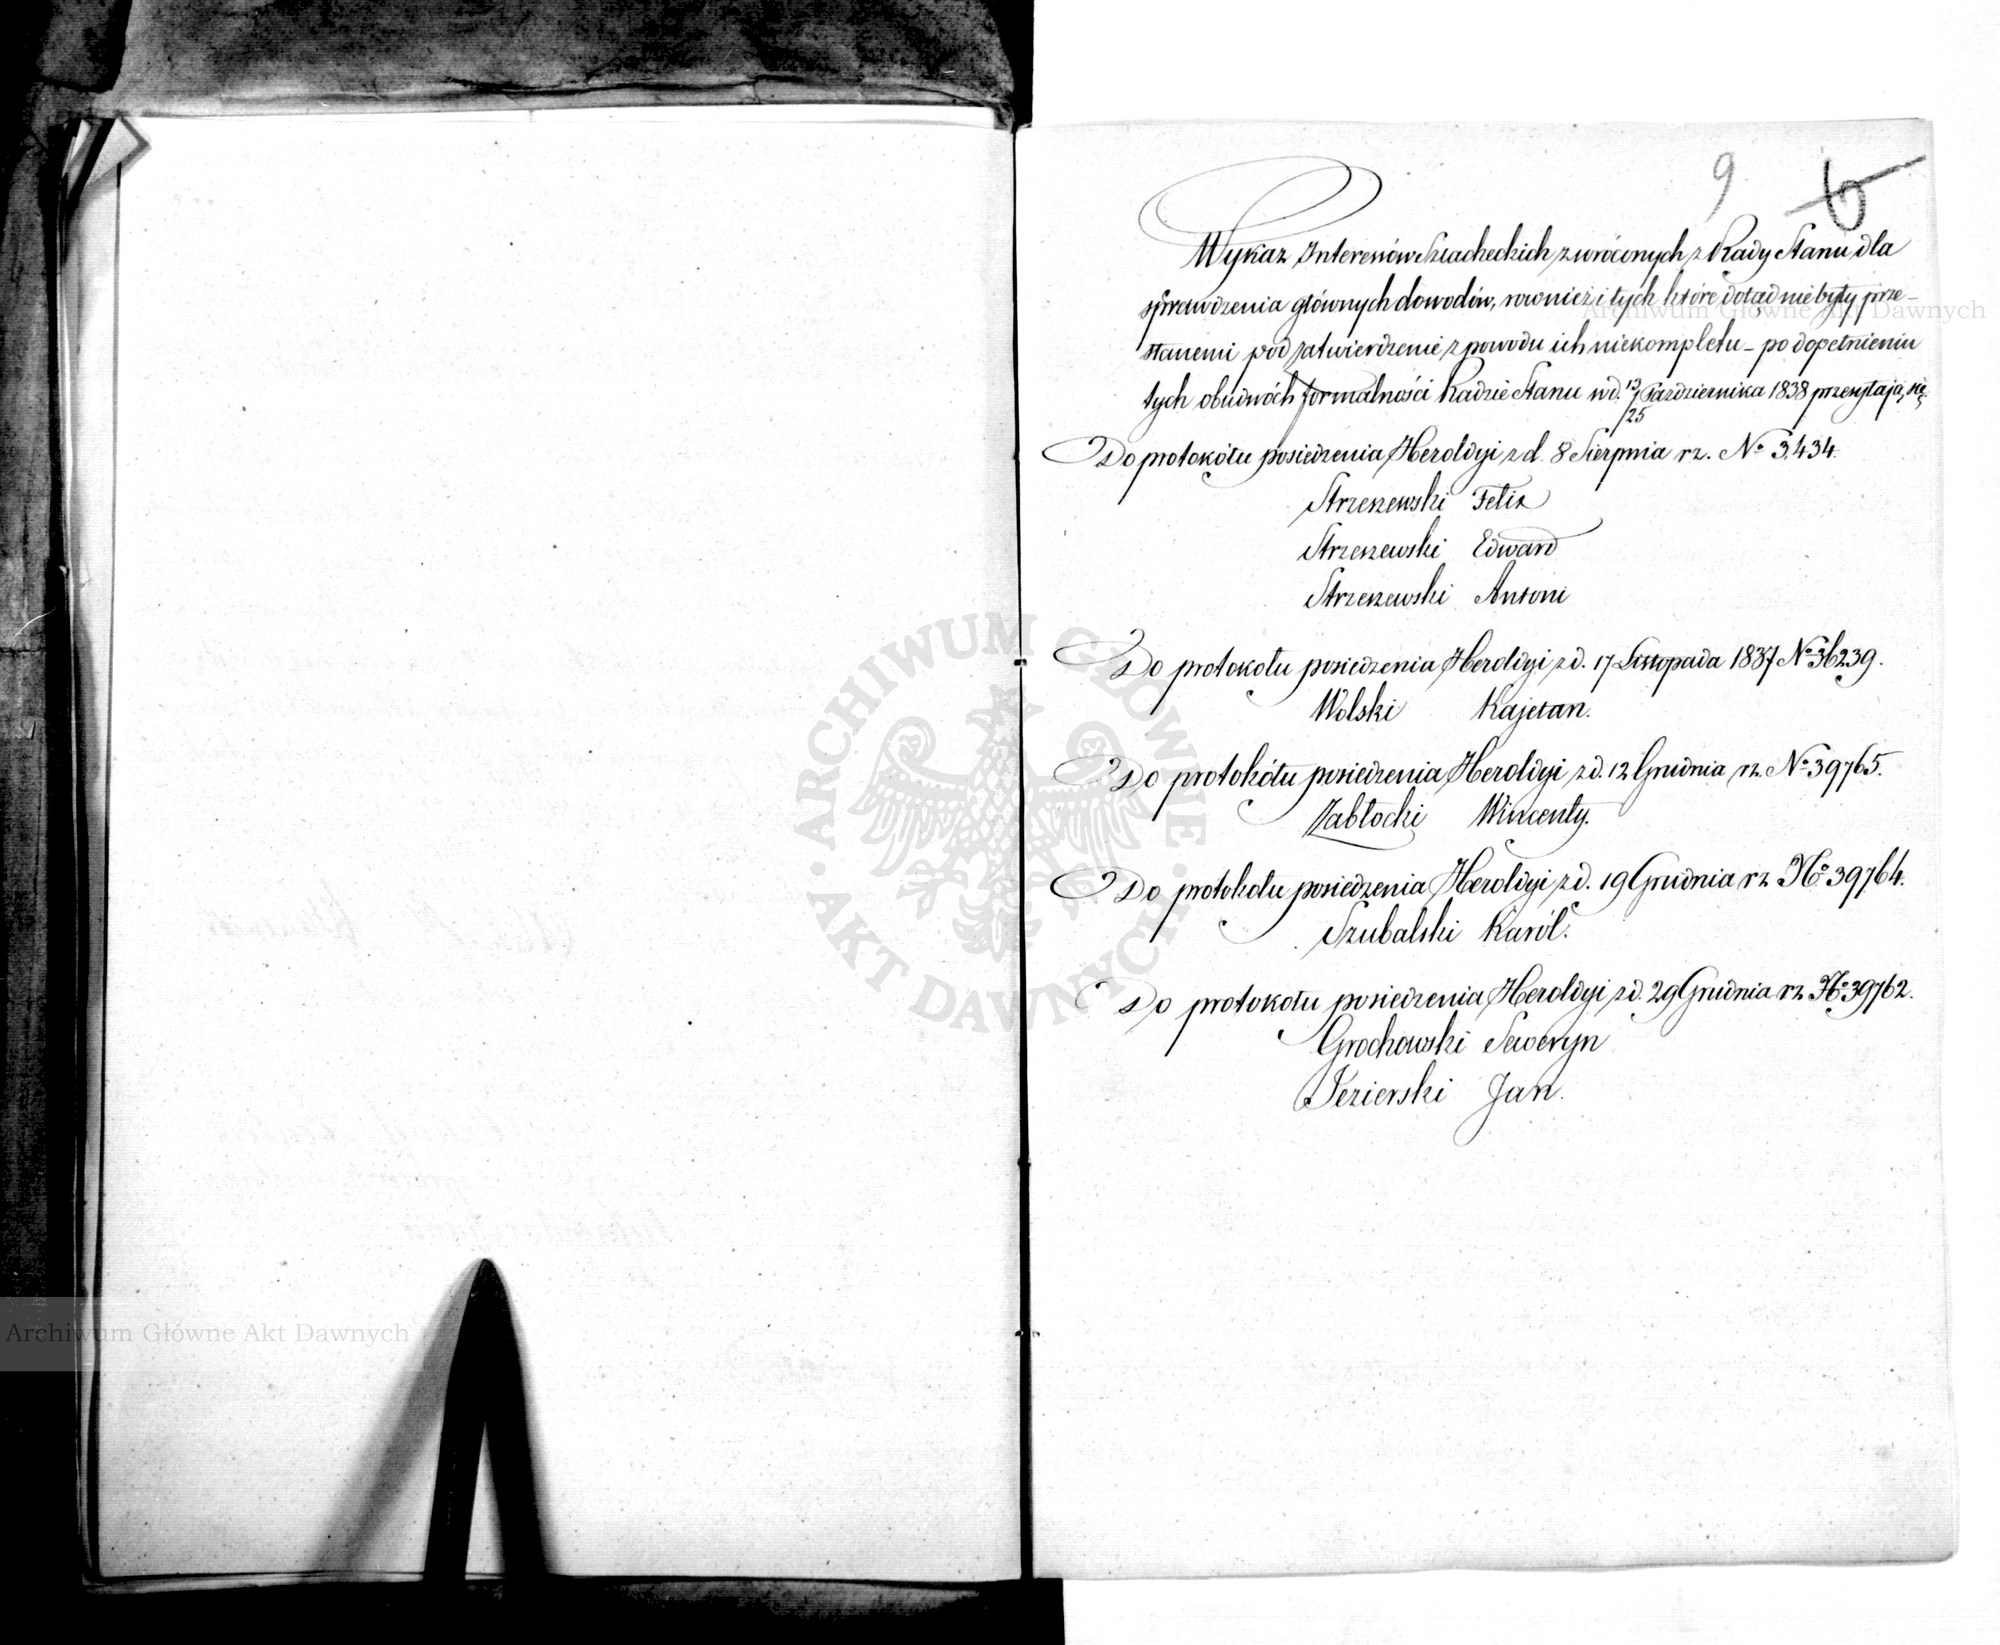 9 6
Wykaz Interessów Szlacheckich zwróconych z Rady Stanu dla
sprawdzenia głównych dowodów, rownież i tych które dotąd nie były prze-
słanemi pod zatwierdzenie z powodu ich niekompletu – po dopełnieniu
tych obudwóch formalności Radzie Stanu w d. 13/25 Października 1838 przesyłają się.
Do protokółu posiedzenia Heroldyi z d. 8 Sierpnia rz. No 3,434.
Strzeszewski Felix
Strzeszewski Edward
Strzeszewski Antoni
Do protokołu posiedzenia Heroldyi z d. 17 Listopada 1837 No 36239.
Wolski Kajetan.
Do protokółu posiedzenia Heroldyi z d. 12 Grudnia rz. No 39765.
Zabłocki Wincenty.
Do protokołu posiedzenia Heroldyi z d. 19 Grudnia rz No 39764.
Szubalski Karól.
Do protokołu posiedzenia Heroldyi z d. 29 Grudnia rz No 39762.
Grochowski Seweryn
Jezierski Jan.
Archiwum Główne Akt Dawnych
ARCHIWUM GŁÓWNE · AKT DAWNYCH ·
Archiwum Główne Akt Dawnych